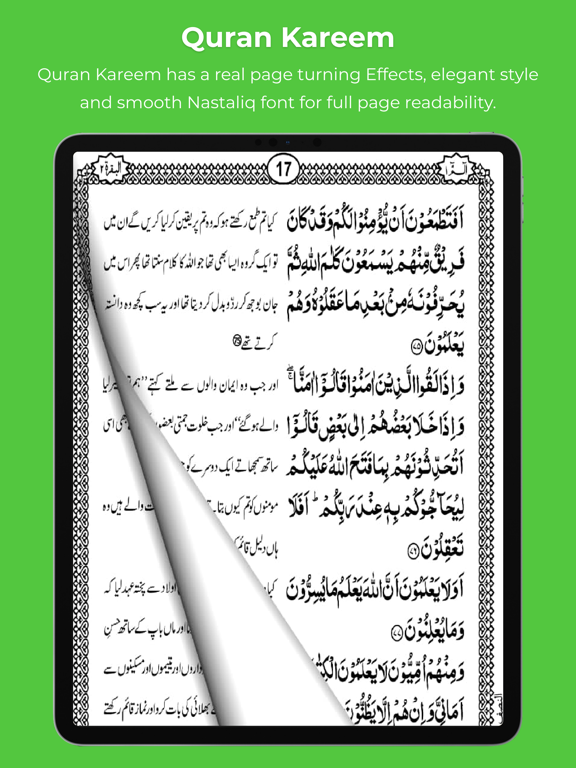 Quran Kareem
Quran Kareem has a real page turning Effects, elegant style
and smooth Nastaliq font for full page readability.
البقرة ٢
17
الٓمّٓ ١
اَفَتَطْمَعُوْنَ اَنْ يُّؤْمِنُوْا لَكُمْ وَقَدْ كَانَ
کیا تم طمع رکھتے ہو کہ وہ تم پر یقین کرلیا کریں گے ان میں
فَرِيْقٌ مِّنْهُمْ يَسْمَعُوْنَ كَلٰمَ اللّٰهِ ثُمَّ
تو ایک گروہ ایسا بھی تھا جو اللہ کا کلام سنتا تھا پھر اس میں
يُحَرِّفُوْنَهٗ مِنْۢ بَعْدِ مَا عَقَلُوْهُ وَهُمْ
جان بوجھ کر ردّ و بدل کر دیتا تھا اور یہ سب کچھ وہ دانستہ
يَعْلَمُوْنَ ۝۷۵
کرتے تھے
وَاِذَا لَقُوا الَّذِيْنَ اٰمَنُوْا قَالُوْٓا اٰمَنَّا ۚۖ
اور جب وہ ایمان والوں سے ملتے کہتے ”ہم تو
وَاِذَا خَلَا بَعْضُهُمْ اِلٰى بَعْضٍ قَالُوْٓا
والے ہو گئے“ اور جب خلوت جمتی بعضوں
اَتُحَدِّثُوْنَهُمْ بِمَا فَتَحَ اللّٰهُ عَلَيْكُمْ
ساتھ سمجھاتے ایک دوسرے کو
لِيُحَآجُّوْكُمْ بِهٖ عِنْدَ رَبِّكُمْ ؕ اَفَلَا
مومنوں کو تم کیوں بتا والے ہیں وہ
تَعْقِلُوْنَ ۝۷۶
ہاں دلیل قائم
اَوَلَا يَعْلَمُوْنَ اَنَّ اللّٰهَ يَعْلَمُ مَا يُسِرُّوْنَ
اولاد سے پختہ عہد لیا کہ
وَمَا يُعْلِنُوْنَ ۝۷۷
اور ماں باپ کے ساتھ حسنِ
وَمِنْهُمْ اُمِّيُّوْنَ لَا يَعْلَمُوْنَ
اور یتیموں اور مسکینوں سے
اَمَانِىَّ وَاِنْ هُمْ اِلَّا يَظُنُّوْنَ
بھلائی کی بات کرو اور نماز قائم رکھتے
النصف